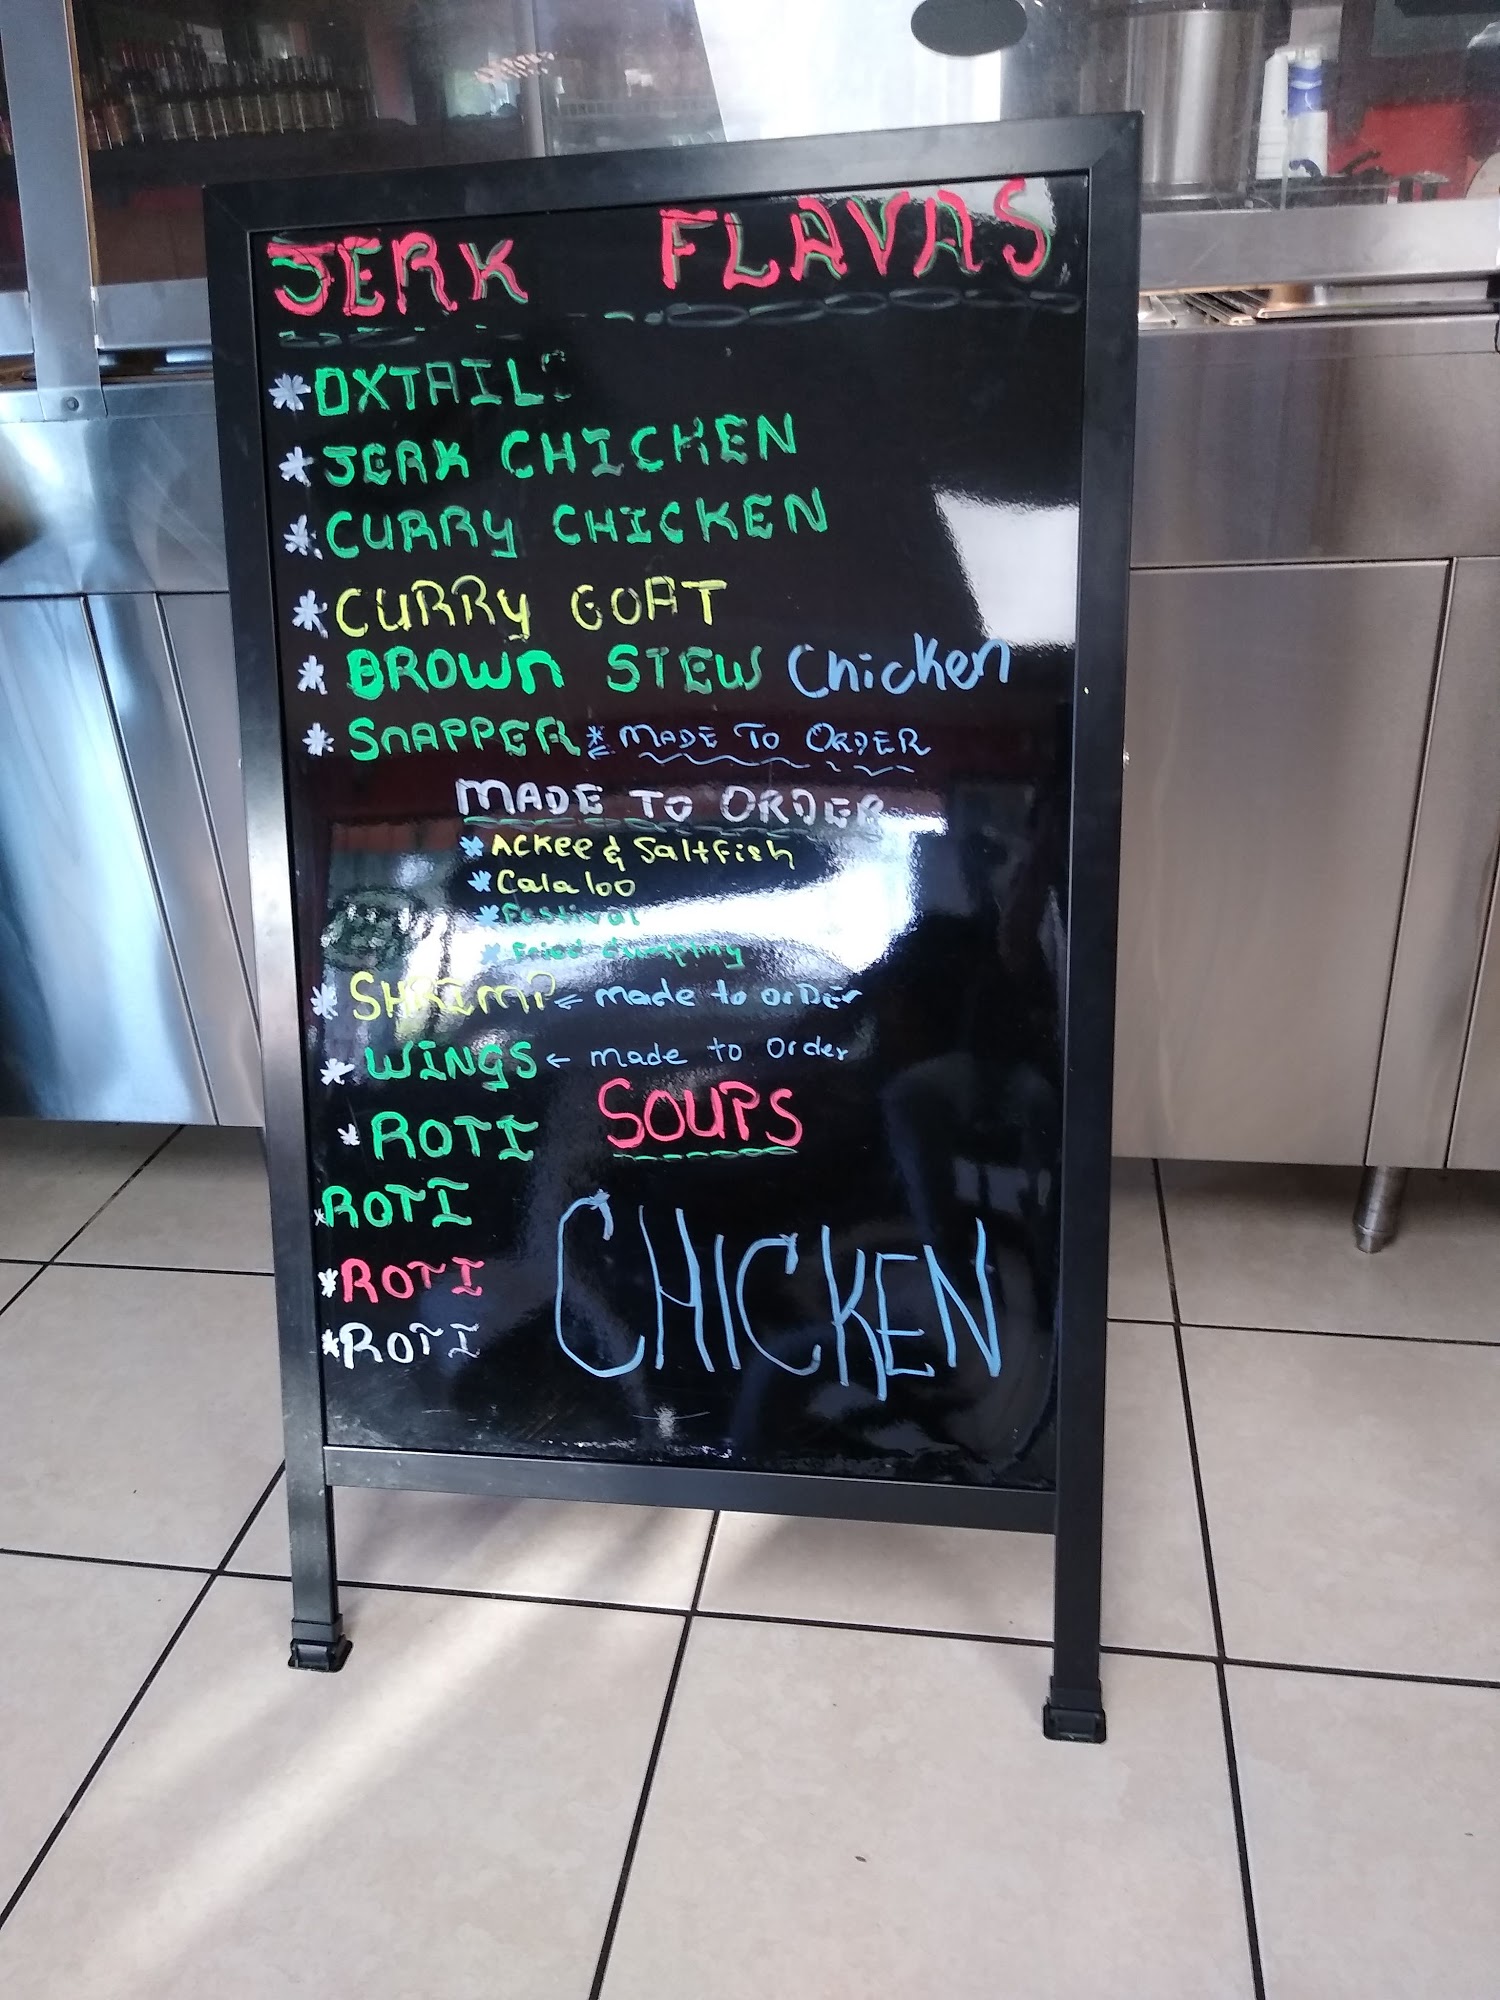 JERK FLAVAS
*OXTAIL
*JERK CHICKEN
*CURRY CHICKEN
*CURRY GOAT
*BROWN STEW Chicken
*SNAPPER *MADE TO ORDER
MADE TO ORDER
*Ackee & Saltfish
*Calaloo
*Festival
*Fried dumpling
*SHRIMP ← made to orDer
*WINGS ← made to Order
*ROTI
SOUPS
*ROTI
*ROTI
CHICKEN
*ROTI